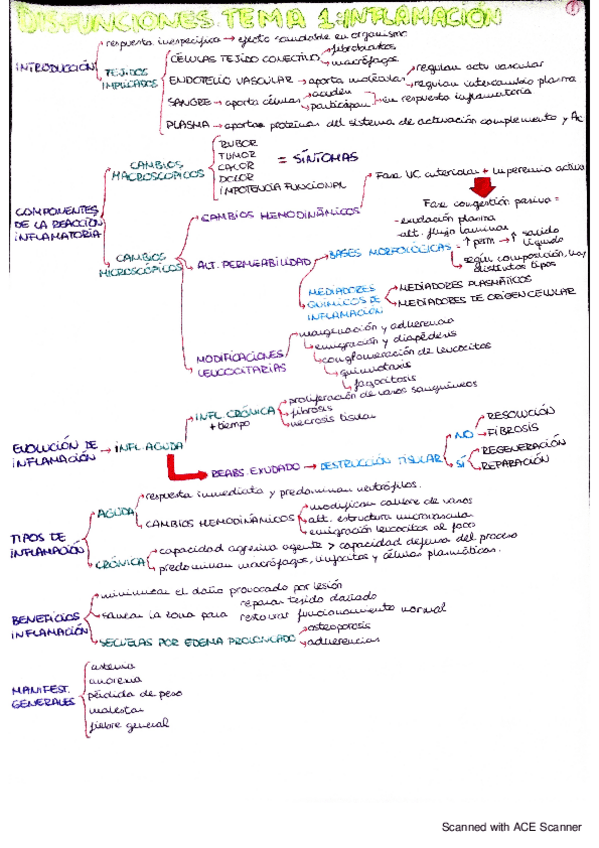 DISFUNCIONES TEMA 1: INFLAMACIÓN
1
INTRODUCCIÓN
respuesta inespecífica → efecto saludable en organismo
TEJIDOS IMPLICADOS
CÉLULAS TEJIDO CONECTIVO
fibroblastos
macrófagos
ENDOTELIO VASCULAR → aporta moléculas
regulan actv vascular
regulan intercambio plasma
SANGRE → aporta células
acuden
participan
en respuesta inflamatoria
PLASMA → aporta proteínas del sistema de activación complemento y Ac
COMPONENTES DE LA REACCIÓN INFLAMATORIA
CAMBIOS MACROSCÓPICOS
RUBOR
TUMOR
CALOR
DOLOR
IMPOTENCIA FUNCIONAL
= SÍNTOMAS
CAMBIOS MICROSCÓPICOS
CAMBIOS HEMODINÁMICOS
Fase VC arteriolas + hiperemia activa
Fase congestión pasiva =
- exudación plasma
- alt. flujo laminar
ALT. PERMEABILIDAD
BASES MORFOLÓGICAS
- ↑ perm → ↑ salida líquido
según composición, hay distintos tipos
MEDIADORES QUÍMICOS DE INFLAMACIÓN
MEDIADORES PLASMÁTICOS
MEDIADORES DE ORIGEN CELULAR
MODIFICACIONES LEUCOCITARIAS
marginación y adherencia
emigración y diapédesis
conglomeración de leucocitos
quimiotaxis
fagocitosis
EVOLUCIÓN DE INFLAMACIÓN
INFL AGUDA
INFL CRÓNICA
+ tiempo
proliferación de vasos sanguíneos
fibrosis
necrosis tisular
REABS. EXUDADO → DESTRUCCIÓN TISULAR
NO
RESOLUCIÓN
FIBROSIS
SÍ
REGENERACIÓN
REPARACIÓN
TIPOS DE INFLAMACIÓN
AGUDA
respuesta inmediata y predominan neutrófilos.
CAMBIOS HEMODINÁMICOS
modifican calibre de vasos
alt. estructura microvascular
emigración leucocitos al foco
CRÓNICA
capacidad agresiva agente > capacidad defensa del proceso
predominan macrófagos, linfocitos y células plasmáticas.
BENEFICIOS INFLAMACIÓN
minimizar el daño provocado por lesión
sanear la zona para
reparar tejido dañado
restaurar funcionamiento normal
SECUELAS POR EDEMA PROLONGADO
osteoporosis
adherencias
MANIFEST. GENERALES
astenia
anorexia
pérdida de peso
malestar
fiebre general
Scanned with ACE Scanner